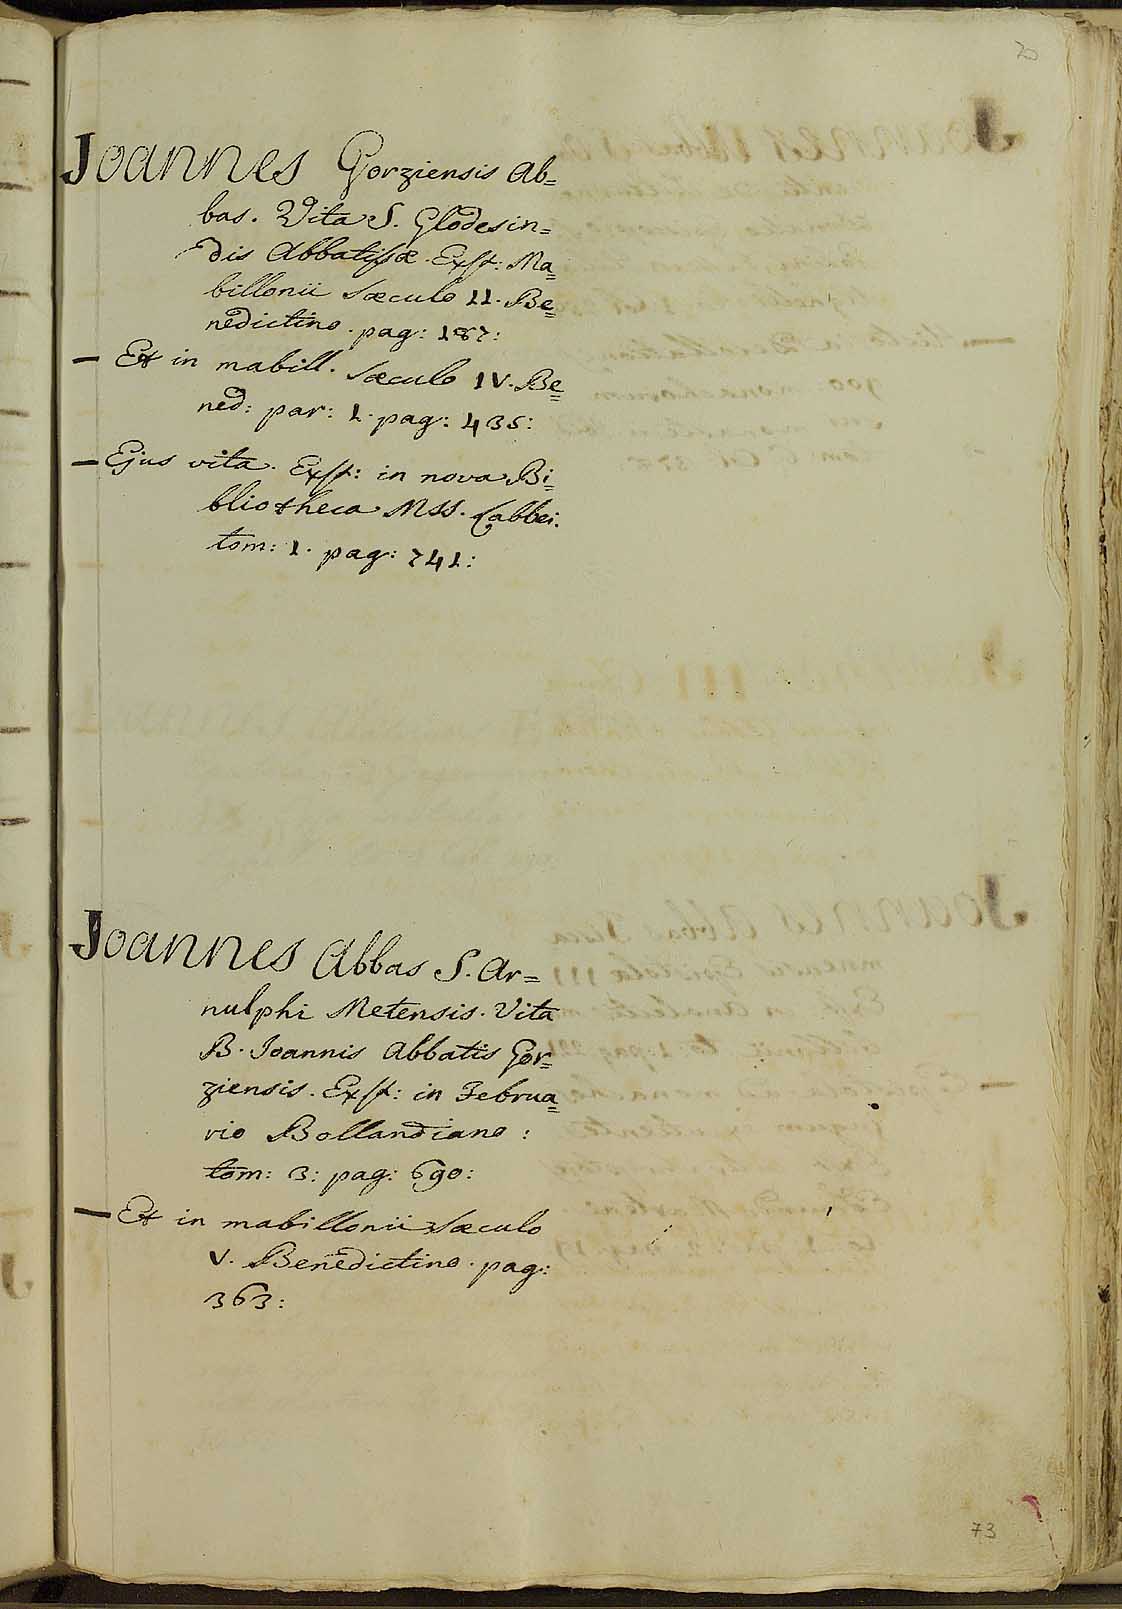 Joannes Gorziensis Ab=
bas. Vita S. Glodesin=
dis Abbatissæ. Exst: Ma=
billonii sæculo II. Be=
nedictino. pag: 187:
— Et in mabill. sæculo IV. Be=
ned: par: 1. pag: 435:
— Ejus vita. Exst: in nova Bi=
bliotheca Mss. Labbei.
tom: 1. pag: 741:
Joannes Abbas S. Ar=
nulphi Metensis. Vita
B. Joannis Abbatis Gor=
ziensis. Exst: in Februa=
rio Bollandiano:
tom: 3: pag: 690:
— Et in mabillonii sæculo
V. Benedictino. pag:
363:
73